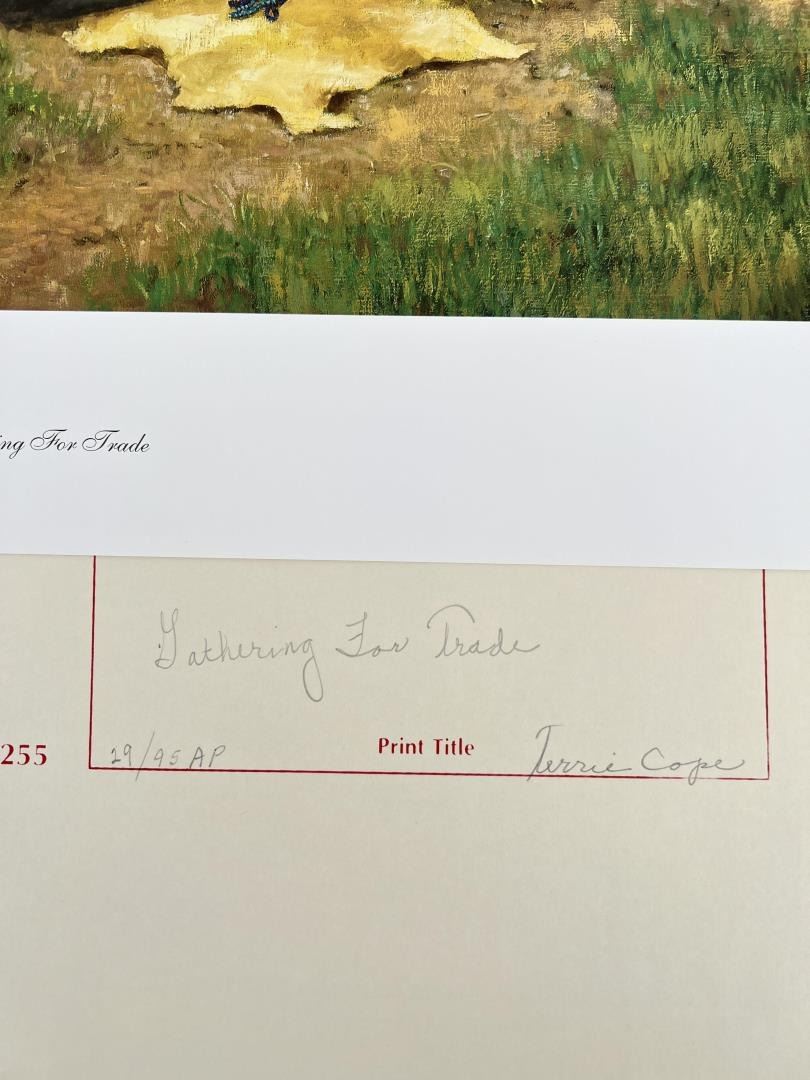 ing For Trade
Gathering For Trade
255
29/95 AP
Print Title
Terrie Cope